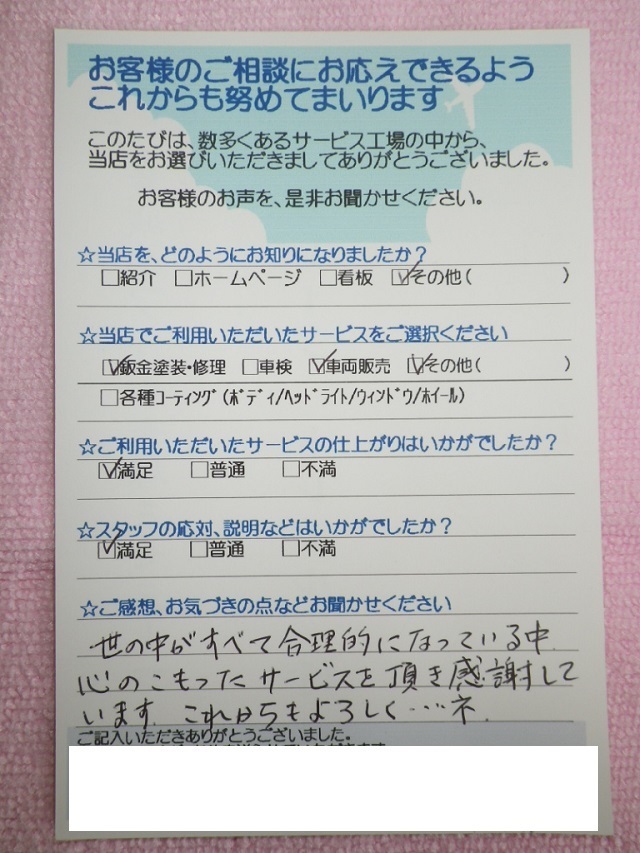 お客様のご相談にお応えできるよう
これからも努めてまいります
このたびは、数多くあるサービス工場の中から、
当店をお選びいただきましてありがとうございました。
お客様のお声を、是非お聞かせください。
☆当店を、どのようにお知りになりましたか？
□紹介 □ホームページ □看板 ☑その他( )
☆当店でご利用いただいたサービスをご選択ください
☑鈑金塗装・修理 □車検 ☑車両販売 ☑その他( )
□各種ｺｰﾃｨﾝｸﾞ(ﾎﾞﾃﾞｨ/ﾍｯﾄﾞﾗｲﾄ/ｳｨﾝﾄﾞｳ/ﾎｲｰﾙ)
☆ご利用いただいたサービスの仕上がりはいかがでしたか？
☑満足 □普通 □不満
☆スタッフの応対、説明などはいかがでしたか？
☑満足 □普通 □不満
☆ご感想、お気づきの点などお聞かせください
世の中がすべて合理的になっている中
心のこもったサービスを頂き感謝して
います。これからもよろしく…ネ.
ご記入いただきありがとうございました。